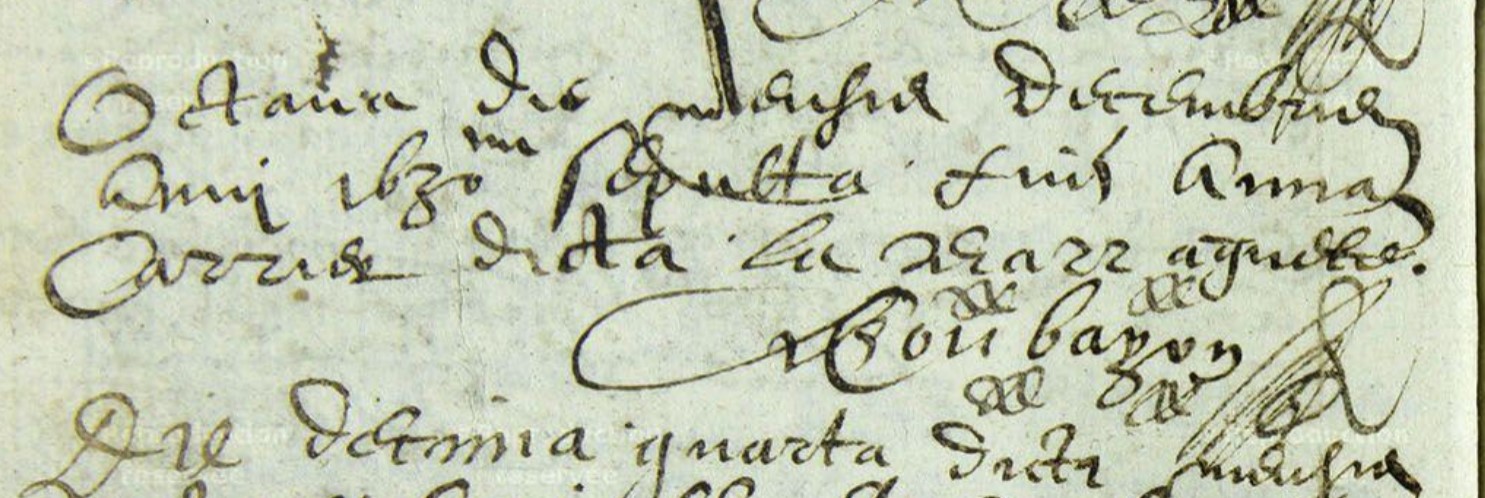 Octava die mensis decembris
Anni 1630 sepulta fuit Anna
Carrier dicta la
Die decima quarta dicti mensis